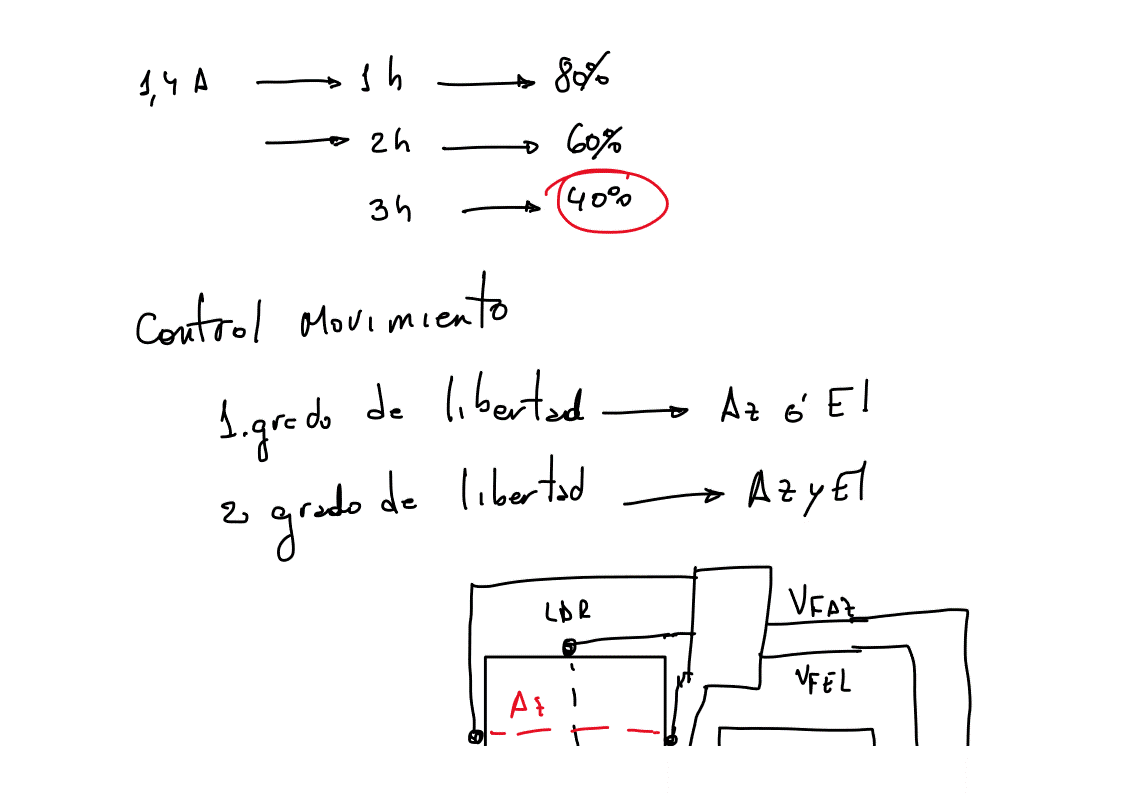 1,4 A → 1 h → 80%
→ 2h → 60%
3h → 40%
Control Movimiento
1. grado de libertad → Az ó El
2 grado de libertad → Az y El
LDR
VFAZ
VFEL
Az